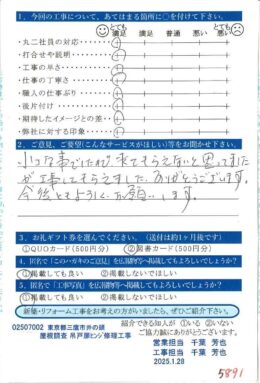 1. 今回の工事について、あてはまる箇所に○を付けて下さい。
とても満足 満足 普通 悪い とても悪い
・丸二社員の対応
・打合せや説明
・工事の早さ
・仕事の丁寧さ
・職人の仕事ぶり
・後片付け
・期待したイメージとの差
・弊社に対する印象
2. ご意見、ご要望(こんなサービスがほしい)等をお聞かせ下さい。
小さな事でしたので来てもらえないと思ってました
が工事してもらえました。ありがとうございます。
今後ともよろしくお願いします。
3. お礼ギフト券を選んでください。(送付は約1ヶ月後です)
①QUOカード(500円分) ②図書カード(500円分)
4. 匿名で「このハガキのご意見」を広報物等へ掲載してもよろしいでしょうか?
①掲載しても良い ②掲載しないでほしい
5. 匿名で「工事写真」を広報物等へ掲載してもよろしいでしょうか?
①掲載しても良い ②掲載しないでほしい
新築・リフォーム工事をお考えの方がいましたら、ぜひご紹介下さい。
紹介できる知人が ①いる ②いない
ご協力誠にありがとうございました
02507002 東京都三鷹市井の頭
屋根調査 吊戸扉ヒンジ修理工事
営業担当 千葉 芳也
工事担当 千葉 芳也
2025.1.28
5891